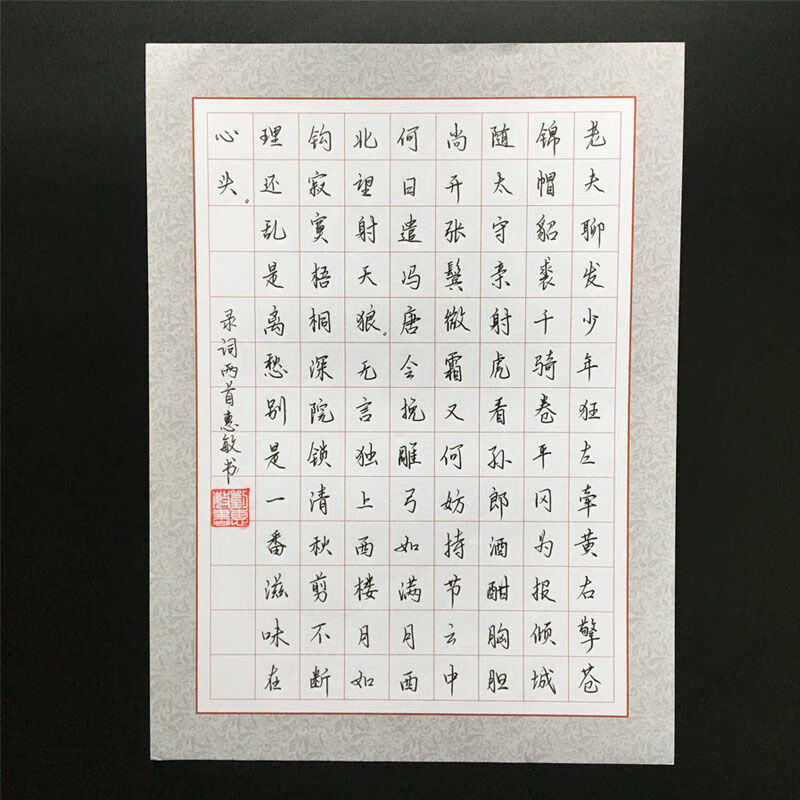 老夫聊发少年狂左牵黄右擎苍
锦帽貂裘千骑卷平冈为报倾城
随太守亲射虎看孙郎酒酣胸胆
尚开张鬓微霜又何妨持节云中
何日遣冯唐会挽雕弓如满月西
北望射天狼。无言独上西楼月如
钩寂寞梧桐深院锁清秋剪不断
理还乱是离愁别是一番滋味在
心头。
录词两首惠敏书
劉惠
敏書